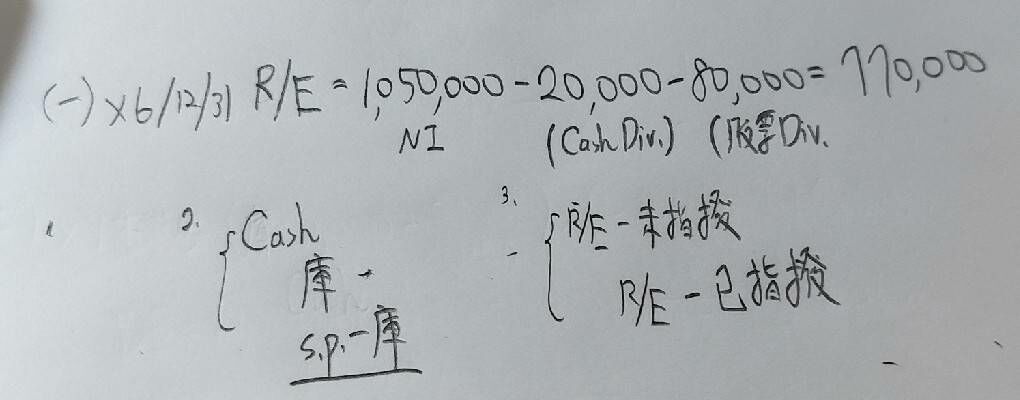 (一) X6/12/31 R/E = 1,050,000 - 20,000 - 80,000 = 770,000
NI (Cash Div.) (股票Div.
1 2. Cash 3. R/E - 未指撥
庫 R/E - 已指撥
s.p. - 庫